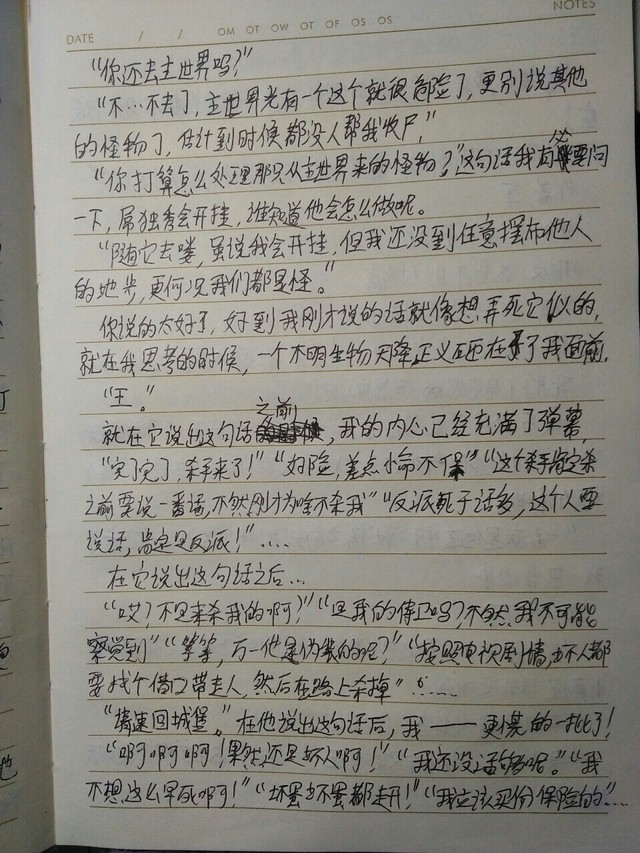 DATE / / OM OT OW OT OF OS OS NOTES
“你还去主世界吗?”
“不…不去了,主世界光有一个这个就很危险了,更别说其他
的怪物了,估计到时候都没人帮我收尸,”
“你打算怎么处理那只从主世界来的怪物?”这句话我有必要问
一下,屌独秀会开挂,谁知道他会怎么做呢。
“随它去喽,虽说我会开挂,但我还没到任意摆布他人
的地步,更何况我们都是怪。”
你说的太好了,好到我刚才说的话就像想弄死它似的,
就在我思考的时候,一个不明生物天降正义砸在了我面前,
“王。”
就在它说出这句话之前,我的内心已经充满了弹幕,
“完了完了,杀手来了!”“好险,差点小命不保”“这个杀手肯定杀
之前要说一番话,不然刚才为啥不杀我”“反派死于话多,这个人要
说话,肯定是反派!”……
在它说出这句话之后…
“哎?不是来杀我的啊?”“是我的侍卫吗?不然我不可能
察觉到”“等等,万一他是伪装的呢?”“按照电视剧情,坏人都
要找个借口带走人,然后在路上杀掉”……
“请速回城堡。”在他说出这句话后,我——更慌的一批了!
“啊啊啊!果然还是坏人啊!”“我还没活够呢。”“我
不想这么早死啊!”“坏蛋坏蛋都走开!”“我应该买份保险的”…
也